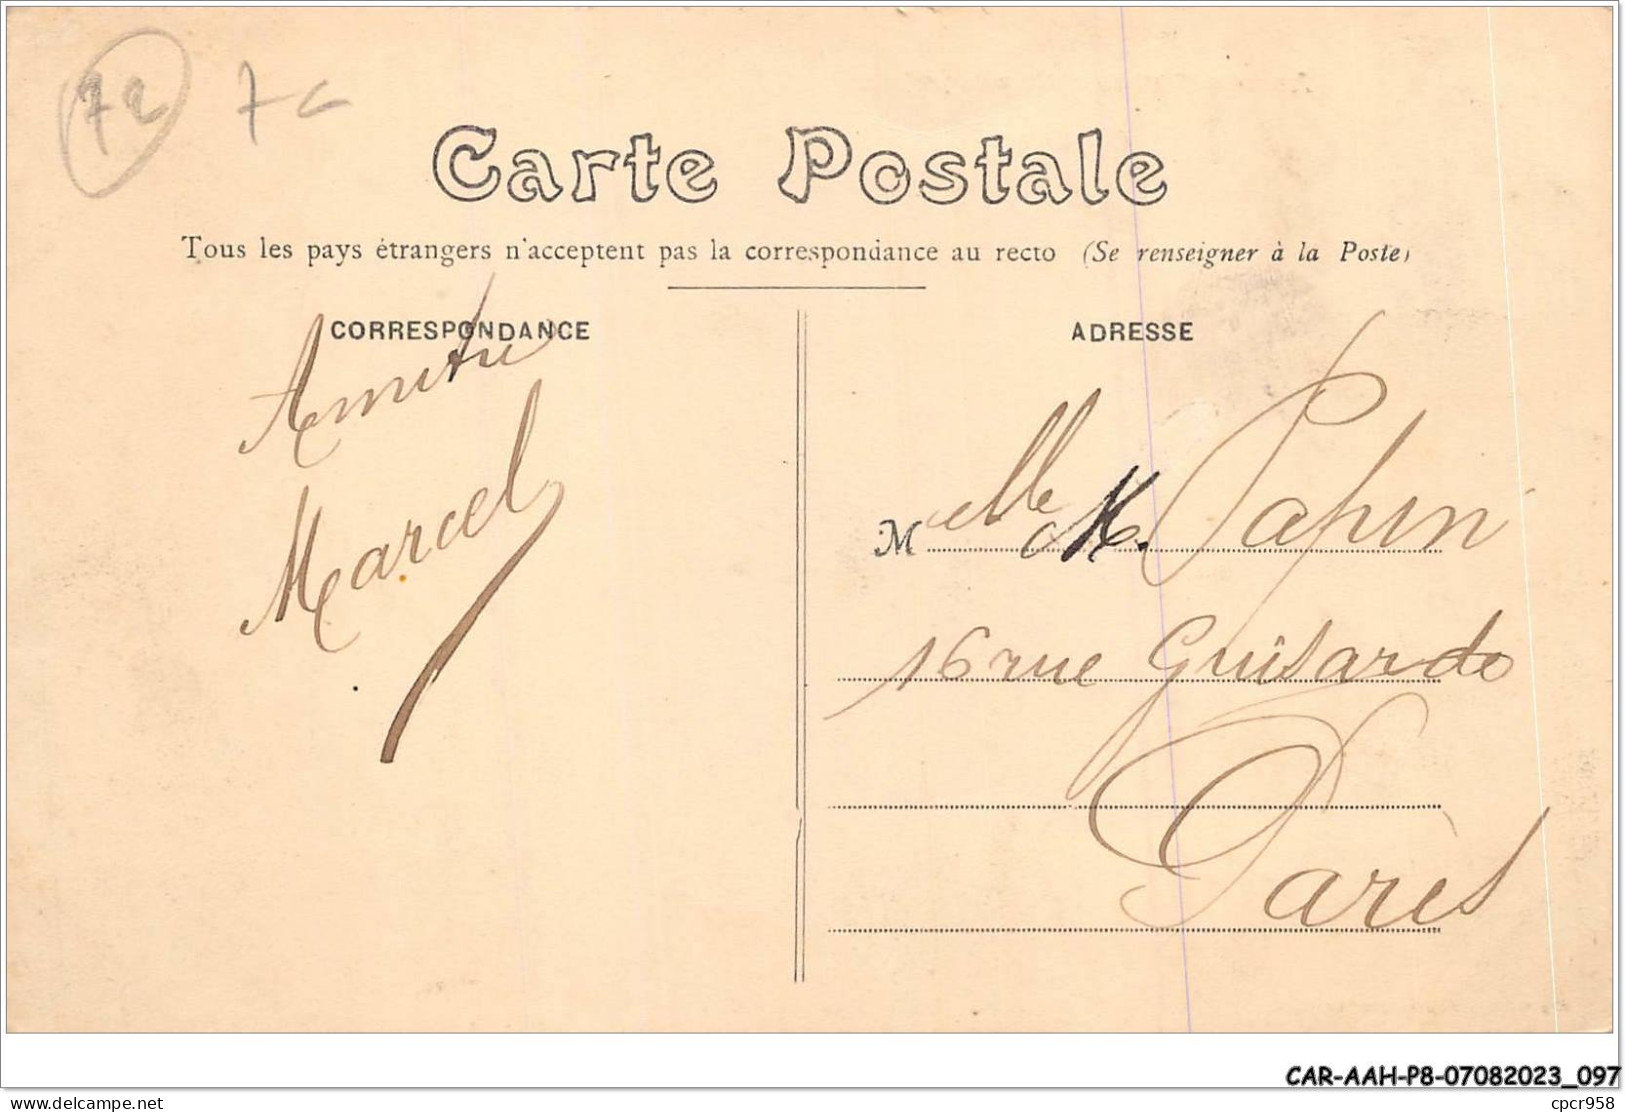 72 7c
Carte Postale
Tous les pays étrangers n'acceptent pas la correspondance au recto (Se renseigner à la Poste)
CORRESPONDANCE
Amitié
Marcel
ADRESSE
Melle M. Papin
16 rue Guisarde
Paris
CAR-AAH-P8-07082023_097
delcampe.net
cpcr958